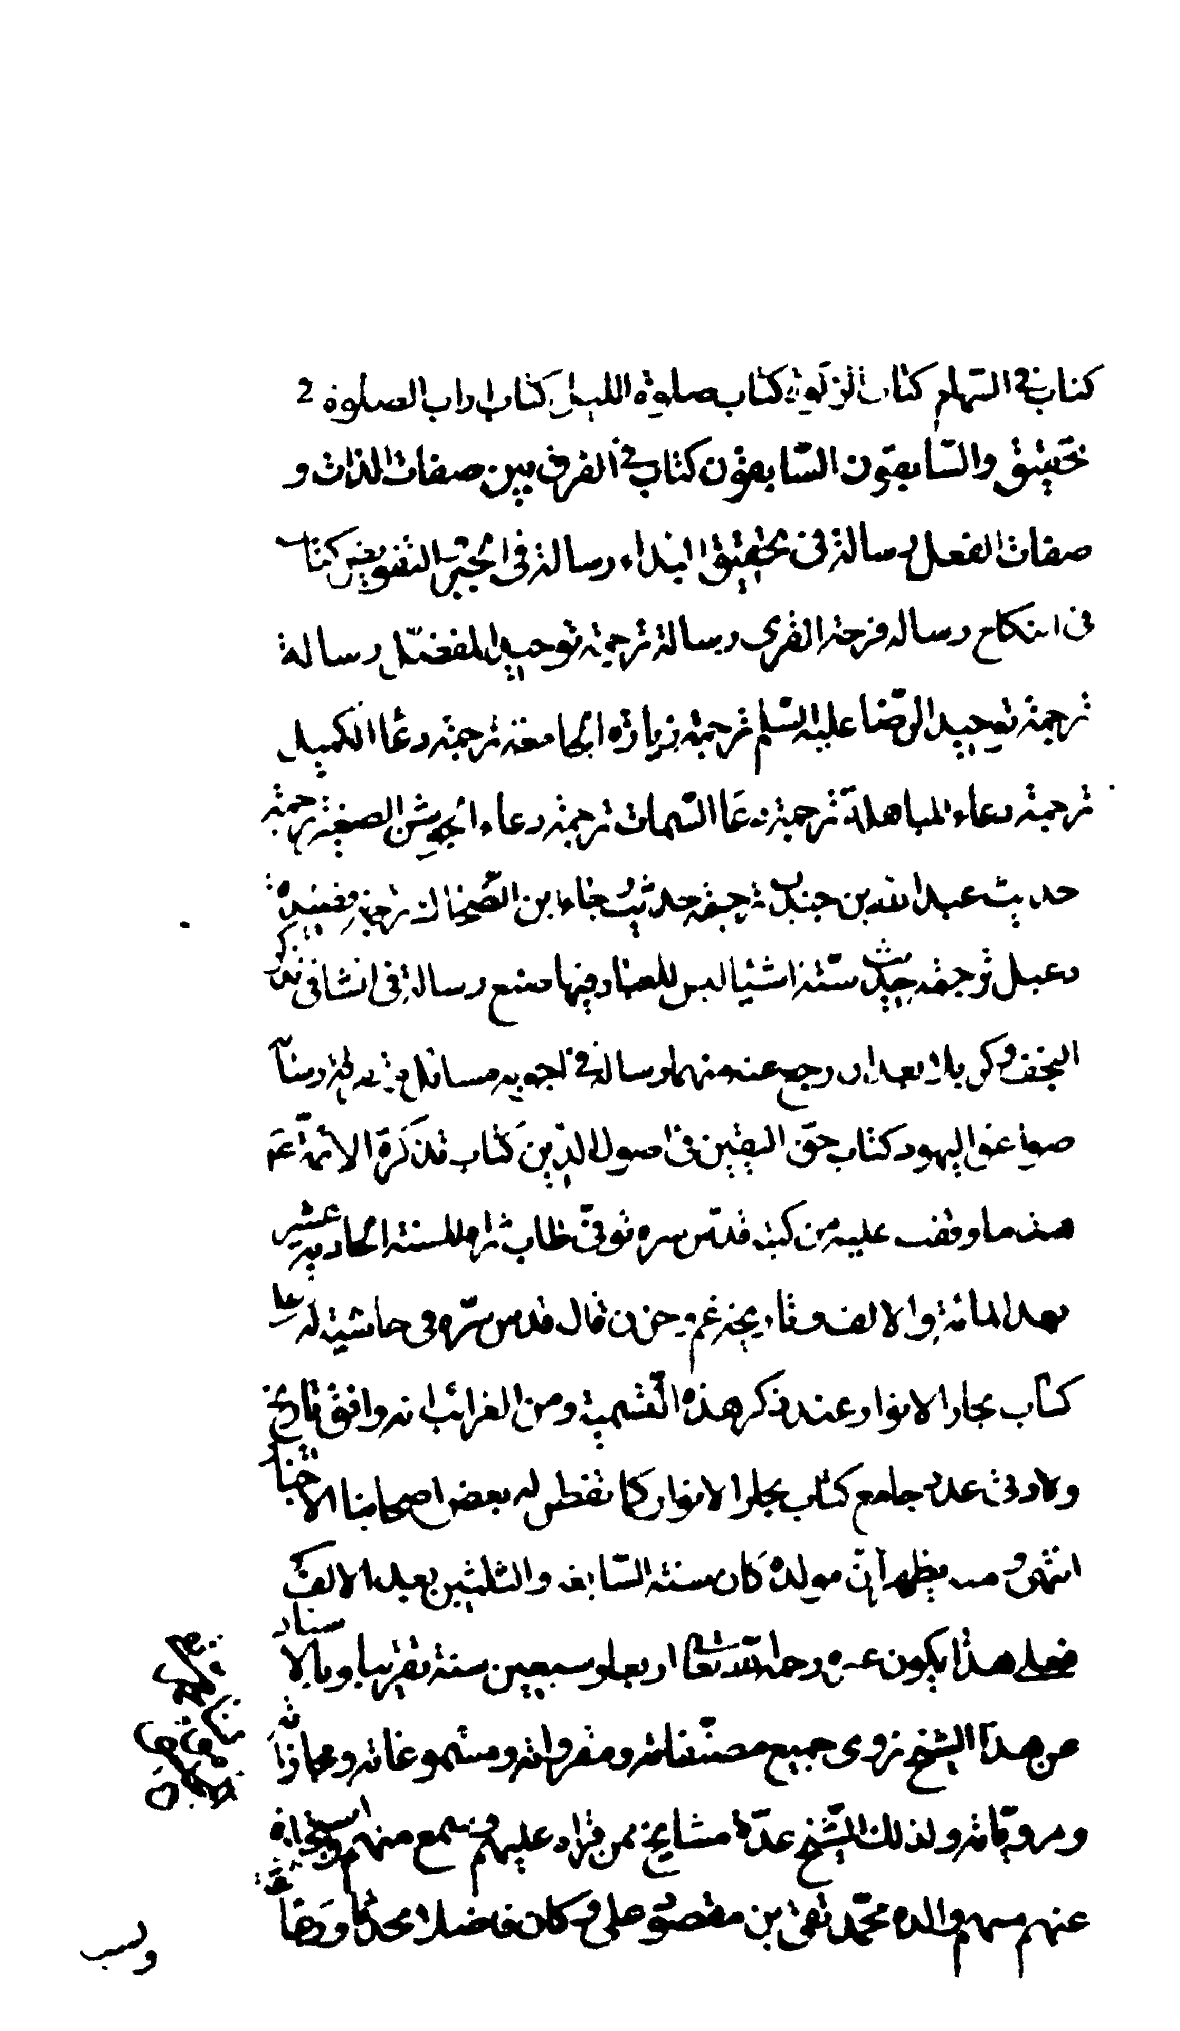 كتاب في السهام كتاب الزكوة كتاب صلوة الليل كتاب اداب الصلوة في
تحقيق والسّابقون السّابقون كتاب في الفرق بين صفات الذات و
صفات الفعل رسالة في تحقيق البداء رسالة في الجبر والتفويض كتاب
في النكاح رساله فرحة الغرى رسالة ترجمة توحيد المفضّل رسالة
ترجمة توحيد الرضا عليه السّلم ترجمة زيارة الجامعة ترجمة دعا الكميل
ترجمة دعاء المباهلة ترجمة دعا السّمات ترجمة دعاء الجوشن الصغير ترجمة
حديث عبد الله بن جندب ترجمة حديث رجاء بن الضّحاك ترجمة قصيدة
دعبل ترجمة حديث ستة اشيا ليس للعباد فيها صنع رسالة في انشا في
النجف وكربلا بعد ان رجع عنه منهما رسالة في اجوبه مسائل متفرقة رسالة
صواعق اليهود كتاب حقّ اليقين في اصول الدّين كتاب تذكرة الائمّة عم
هذه ما وقفت عليه من كتبه قدّس سره توفّي طاب ثراه للسنة الحادية عشر
بعد المائة والالف وتاريخه غم وحزن قال قدس سرّه في حاشية له على
كتاب بحار الانوار عند ذكر هذه القسمية ومن الغرائب انه وافق تاريخ
ولادتى عدد جامع كتاب بحار الانوار كما تفطن له بعض اصحابنا الاخيار
انتهى ومنه يظهر انّ مولده كان سنة السّابعة والثلثين بعد الالف
فعلى هذا يكون عمره رحمه الله تعالى اربعا وسبعين سنة تقريبا وبالاسناد
عن هذا الشيخ نروى جميع مصنّفاته ومقرواته ومسموعاته ومجازاته
ومرويّاته ولذلك الشّيخ عدّة مشايخ ممن قراء عليهم وسمع منهم واستجازه
عنهم منهم والده محمّد تقى بن مقصود على وكان فاضلا محدثا ورعا ثقة
وسبب